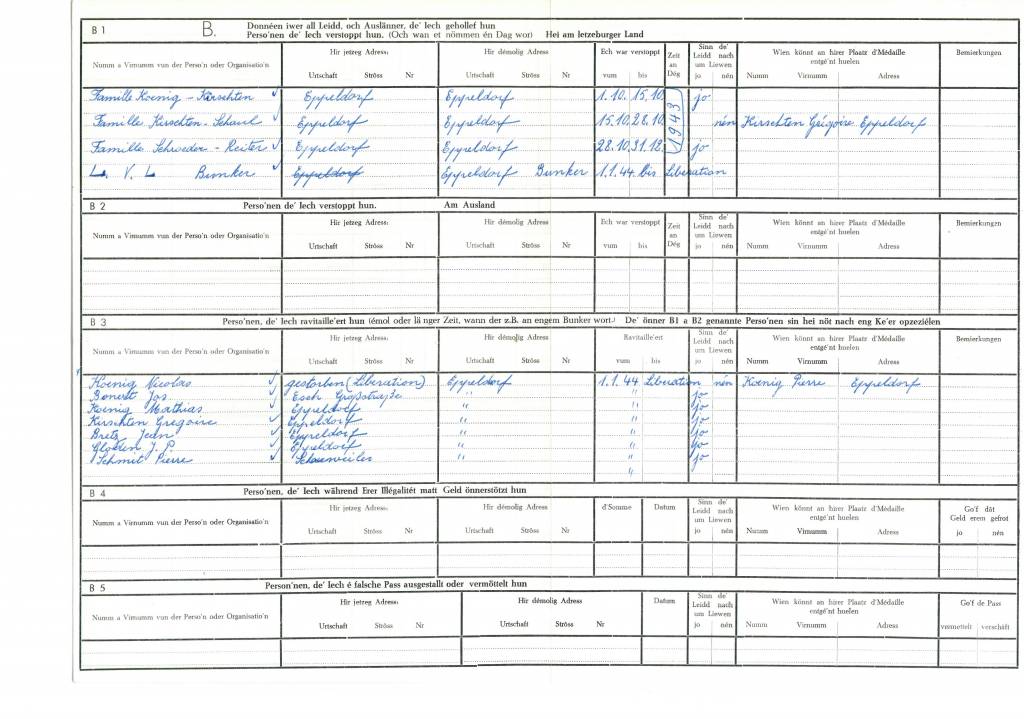 B 1 B. Donnéen iwer all Leidd, och Auslänner, de' Iech gehollef hun
Perso'nen de' Iech verstoppt hun. (Och wan et nömmen én Dag wor) Hei am letzeburger Land
Numm a Virnumm vun der Perso'n oder Organisatio'n Hir jetzeg Adress: Urtschaft Ströss Nr Hir démolig Adress: Urtschaft Ströss Nr Ech war verstoppt vum bis Zeit an Dég Sinn de' Leidd nach um Liewen jo nén Wien könnt an hirer Plaatz d'Médaille entgé'nt huelen Numm Virnumm Adress Bemierkungen
Famille Koenig - Kirschten ✓ Eppeldorf Eppeldorf 1.10. 15.10. 1943 jo
Famille Kirschten - Schaul ✓ Eppeldorf Eppeldorf 15.10. 28.10. nén Kirschten Grégoire Eppeldorf
Famille Schroeder - Reiter ✓ Eppeldorf Eppeldorf 28.10. 31.12. jo
L. V. L Bunker ✓ Eppeldorf Eppeldorf Bunker 1.1.44 bis Liberation
B 2 Perso'nen de' Iech verstoppt hun. Am Ausland
Numm a Virnumm vun der Perso'n oder Organisatio'n Hir jetzeg Adress: Urtschaft Ströss Nr Hir démolig Adress: Urtschaft Ströss Nr Ech war verstoppt vum bis Zeit an Dég Sinn de' Leidd nach um Liewen jo nén Wien könnt an hirer Plaatz d'Médaille entgé'nt huelen Numm Virnumm Adress Bemierkungen
B 3 Perso'nen, de' Iech ravitaille'ert hun (émol oder länger Zeit, wann der z.B. an engem Bunker wort.) De' önner B1 a B2 genannte Perso'nen sin hei nöt nach eng Ke'er opzezielen
Numm a Virnumm vun der Perso'n oder Organisatio'n Hir jetzeg Adress: Urtschaft Ströss Nr Hir démolig Adress: Urtschaft Ströss Nr Ravitaille'ert vum bis Sinn de' Leidd nach um Liewen jo nén Wien könnt an hirer Plaatz d'Médaille entgé'nt huelen Numm Virnumm Adress Bemierkungen
Koenig Nicolas ✓ gestorben (Liberation) Eppeldorf 1.1.44 Liberation nén Koenig Pierre Eppeldorf
Jos ✓ Esch Großstraße " " jo
Koenig Mathias ✓ Eppeldorf " " jo
Kirschten Grégoire ✓ Eppeldorf " " jo
Bretz ✓ Eppeldorf " " jo
J. P. ✓ Eppeldorf " " jo
Schmit Pierre ✓ " " jo
"
B 4 Perso'nen, de' Iech während Erer Illégalitét matt Geld önnerstötzt hun
Numm a Virnumm vun der Perso'n oder Organisatio'n Hir jetzeg Adress: Urtschaft Ströss Nr Hir démolig Adress: Urtschaft Ströss Nr d'Somme Datum Sinn de' Leidd nach um Liewen jo nén Wien könnt an hirer Plaatz d'Médaille entgé'nt huelen Numm Virnumm Adress Go'f dât Geld erem gefrot jo nén
B 5 Person'nen, de' Iech é falsche Pass ausgestallt oder vermöttelt hun
Numm a Virnumm vun der Perso'n oder Organisatio'n Hir jetzeg Adress: Urtschaft Ströss Nr Hir démolig Adress Urtschaft Ströss Nr Datum Sinn de' Leidd nach um Liewen jo nén Wien könnt an hirer Plaatz d'Médaille entgé'nt huelen Numm Virnumm Adress Go'f de Pass vermettelt verschâft